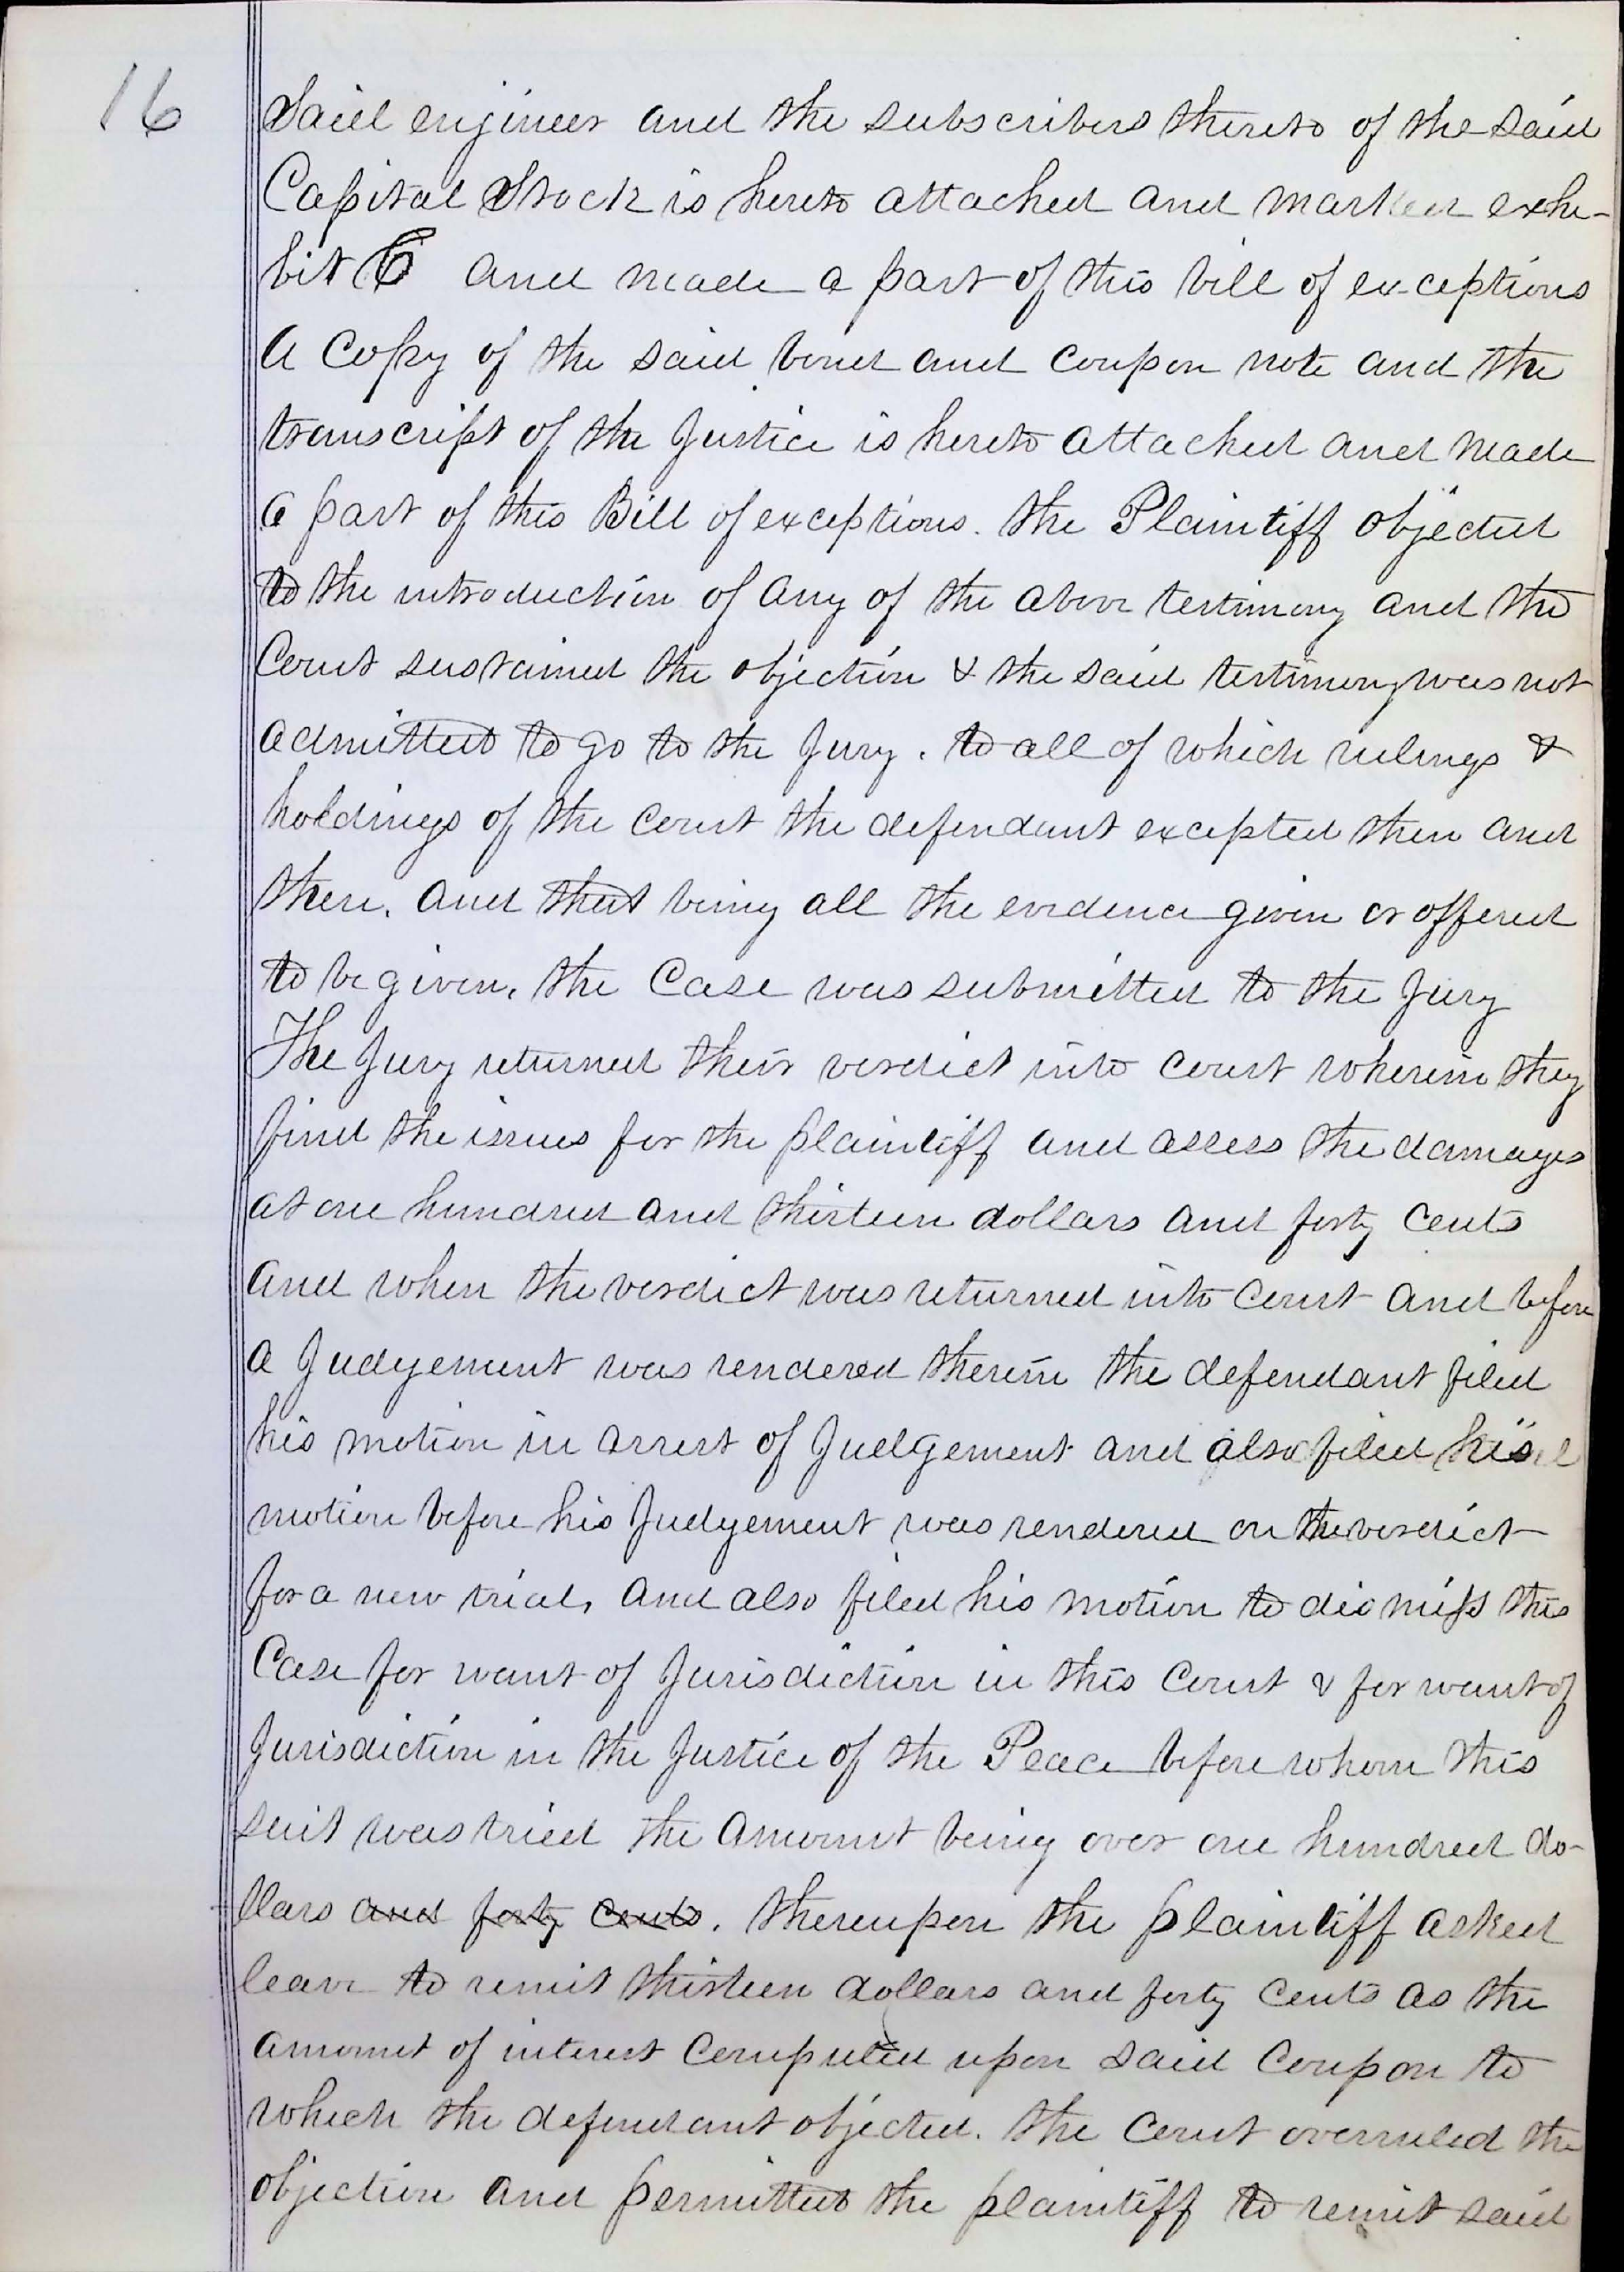 16
Said engineer and the subscribers thereto of the said
Capital Stock is hereto attached and marked exhi-
bit C and made a part of this bill of exceptions
A Copy of the said bond and coupon note and the
transcript of the Justice is hereto attached and made
a part of this Bill of exceptions. the Plaintiff objected
to the introduction of any of the above testimony and the
Court sustained the objection & the said testimony was not
admitted to go to the Jury. to all of which rulings &
holdings of the Court the defendant excepted then and
there. and that being all the evidence given or offered
to be given, the Case was submitted to the Jury
The Jury returned their verdict into court wherein they
find the issues for the plaintiff and assess the damages
at one hundred and thirteen dollars and forty cents
and when the verdict was returned into Court and before
a Judgement was rendered therein the defendant filed
his motion in arrest of Judgement and also filed his
motion before his Judgement was rendered on the verdict
for a new trial, and also filed his motion to dismiss this
Case for want of Jurisdiction in this Court & for want of
Jurisdiction in the Justice of the Peace before whom this
suit was tried the amount being over one hundred do-
llars and forty cents. thereupon the plaintiff asked
leave to remit thirteen dollars and forty cents as the
amount of interest computed upon said Coupon to
which the defendant objected. the Court overruled the
objection and permitted the plaintiff to remit said